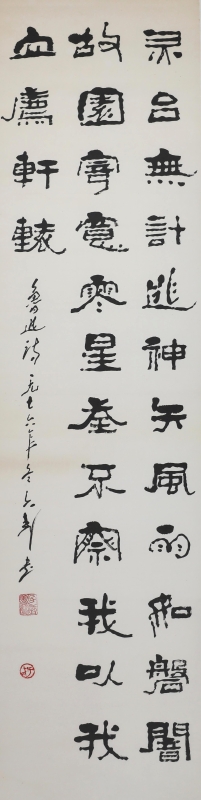 灵台無計逃神矢風雨如磐闇
故園寄意寒星荃不察我以我
血薦軒轅
魯迅詩一九七六年冬